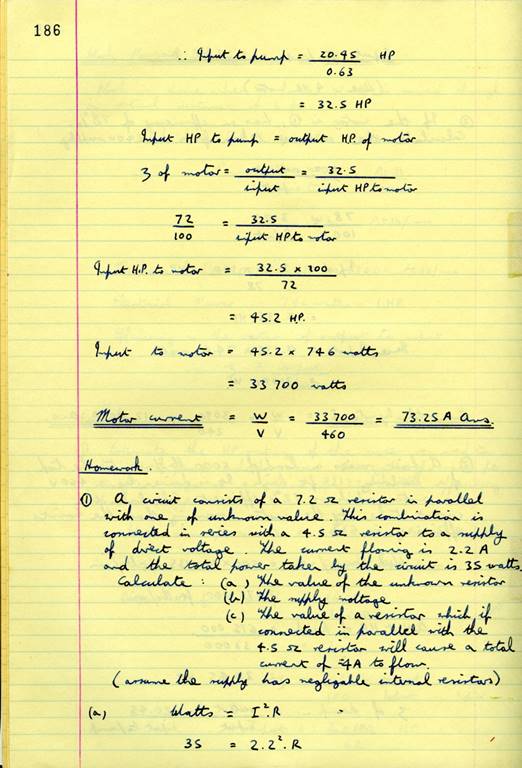 186
∴ Input to pump = 20.45 / 0.63 HP
= 32.5 HP
Input HP to pump = output H.P. of motor
η of motor = output / input = 32.5 / input HP to motor
72 / 100 = 32.5 / input HP to motor
Input H.P. to motor = 32.5 × 100 / 72
= 45.2 H.P.
Input to motor = 45.2 × 746 watts
= 33 700 watts
Motor current = W / V = 33 700 / 460 = 73.25 A Ans.
Homework.
① A circuit consists of a 7.2 Ω resistor in parallel
with one of unknown value. This combination is
connected in series with a 4.5 Ω resistor to a supply
of direct voltage. The current flowing is 2.2 A
and the total power taken by the circuit is 35 watts.
Calculate : (a) The value of the unknown resistor
(b) The supply voltage
(c) The value of a resistor which if
connected in parallel with the
4.5 Ω resistor will cause a total
current of 4A to flow.
(assume the supply has negligable internal resistors)
(a) Watts = I².R
35 = 2.2².R